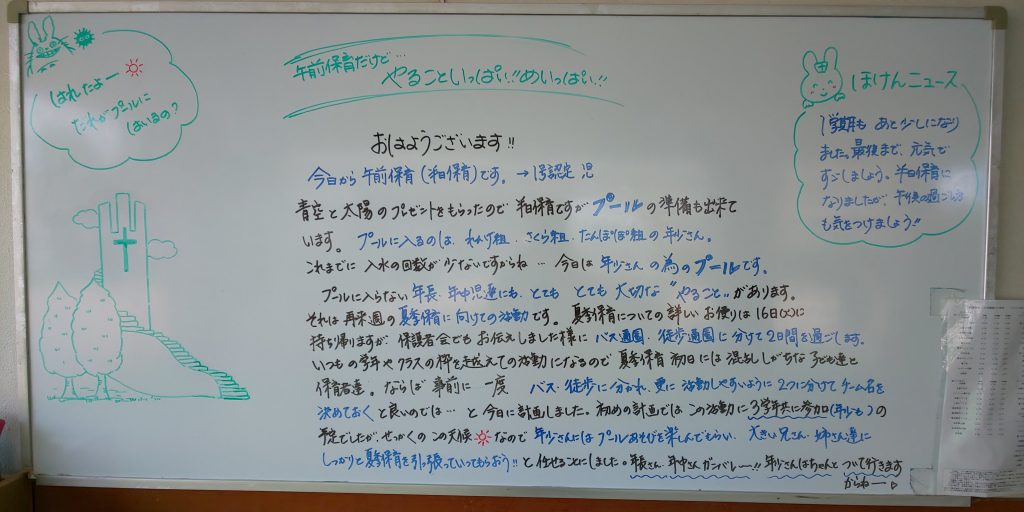 はれたよー
だれがプールに
はいるの?
午前保育だけど…
やることいっぱい!!めいっぱい!!
ほけんニュース
1学期も あと少しになり
ました。最後まで、元気で
すごしましょう。半日保育に
なりましたが、午後の過ごし方
も気をつけましょう!!
おはようございます!!
今日から 午前保育(半日保育)です。→1号認定 児
青空と太陽のプレゼントをもらったので 半日保育ですが プールの準備も出来て
います。 プールに入るのは、れんげ組、さくら組、たんぽぽ組の年少さん。
これまでに 入水の回数が少ないですからね… 今日は 年少さんの為のプールです。
プールに入らない 年長、年中児達にも、とても とても 大切な "やること"があります。
それは 再来週の 夏季保育に向けての活動です。 夏季保育についての詳しい お便りは 16日(火)に
持ち帰りますが、保護者会でもお伝えしました様に バス通園、徒歩通園に分けて2日間を過ごします。
いつもの学年やクラスの枠を越えての活動になるので 夏季保育初日には 混乱しがちな 子ども達と
保育者達。 ならば 事前に 一度 バス・徒歩に分かれ、更に 活動しやすいように 2つに分けて チーム名を
決めておくと良いのでは… と 今日に計画しました。 初めの計画では この活動に 3学年共に参加(年少も)の
予定でしたが、せっかくの この天候 なので 年少さんには プールあそびを楽しんでもらい、 大きい 兄さん、姉さん達に
しっかりと夏季保育を引っ張っていってもらおう!! と 任せることにしました。年長さん、年中さん ガンバレー!! 年少さんはちゃんと ついて行きます
からねー